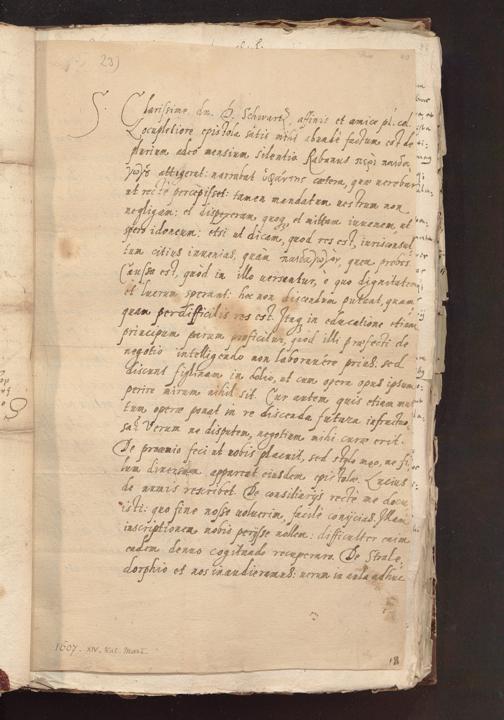 23)
S. Clarissime dn. D. Schwartz, affinis et amice pl. col.
Locupletiore epistola satis mihi abunde factum est de
plurium adeo mensium silentio. Rabanus περι παιδα
γωγȣ attigerat: narrabat cætera, quæ uerebar
ut recte percepisset: tamen mandatum uestrum non
negligam: et dispiciam, quoq et mittam iuuenem, ut
spero idoneum: etsi ut dicam, quod res est, iurisconsul
tum citius inuenias, quam παιδαγωγὸν, quem probes.
Causa est, quod in illo uersantur, e quo dignitatem
et lucrum sperant: hoc non discendum putant, quam
quam perdifficilis res est. Itaq in educatione etiam
principum parum proficitur, quod illi præfecti de
negotio intelligendo non laborauere prius: sed
discunt figlinam in dolio, ut cum opera opus ipsum
perire mirum nihil sit. Cur autem quis etiam mul
tum operæ ponat in re discenda futura infructuo
sa? Verum ne disputem, negotium mihi curæ erit.
De proœmio feci ut uobis placuit, sed stylo meo, ne fi
lum diuersum appareat eiusdem epistolæ. Lucius
de numis rescribet. De consiliarijs recte me docu
isti: quo fine nosse uoluerim, facile conijcias.
inscriptionem nobis perijsse nollem: difficulter enim
eadem denuo cogitando recuperaro. De Strale
dorphio et nos inaudieramus: uerum in aula adhuc
1607. XIV. Kal. Mart.
18